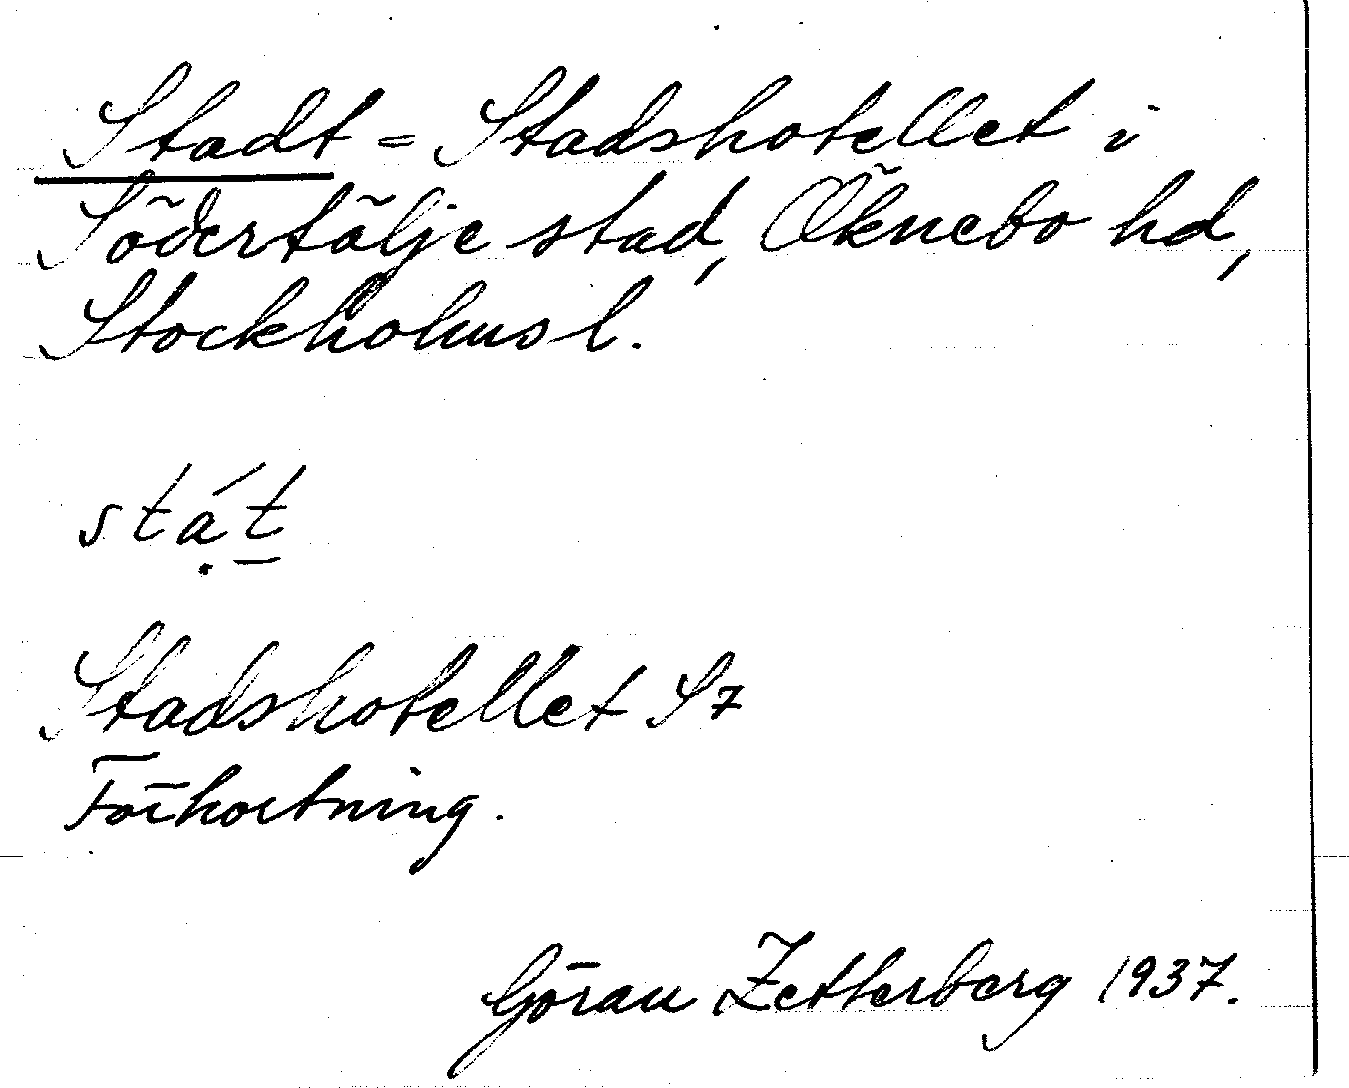 Stadt = Stadshotellet i
Södertälje stad, Öknebo hd,
Stockholms l.
stạ́t̲
Stadshotellet S7
Förkortning.
Göran Zetterberg 1937.